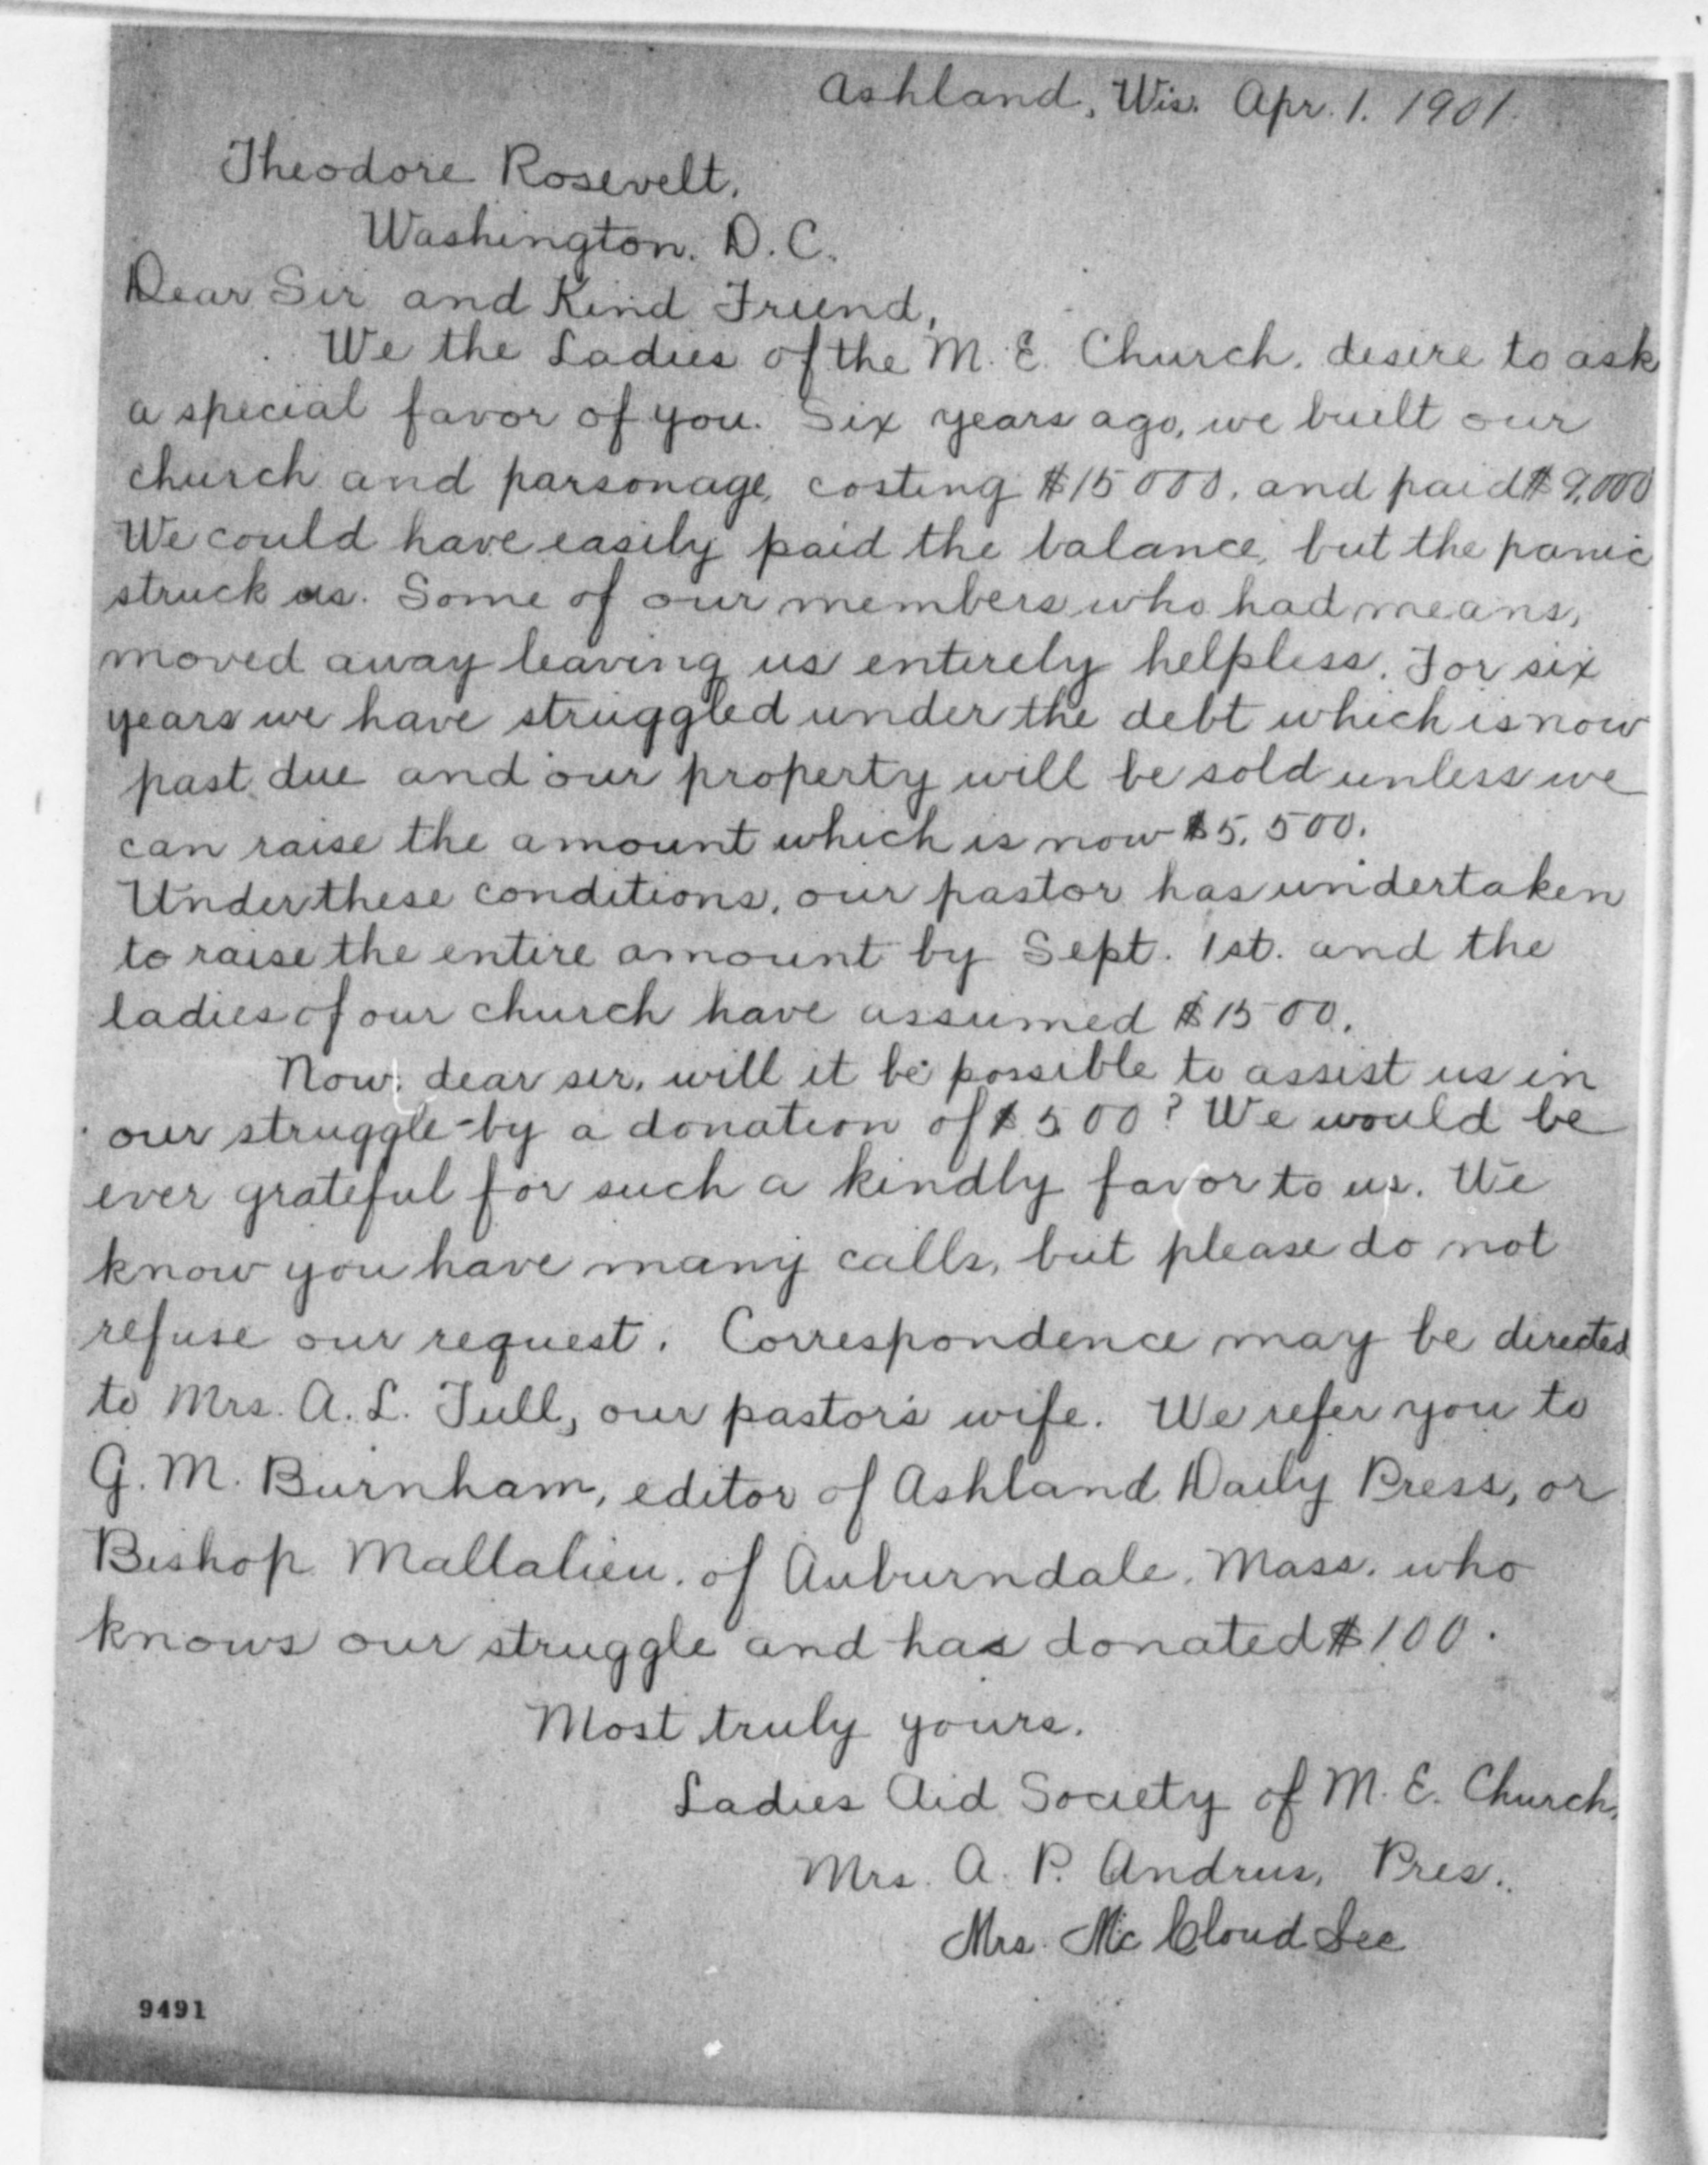 Ashland, Wis. Apr. 1. 1901.
Theodore Rosevelt,
Washington. D. C.
Dear Sir and Kind Friend,
We the Ladies of the M. E. Church, desire to ask
a special favor of you. Six years ago, we built our
church and parsonage, costing $15000, and paid $9,000
We could have easily paid the balance, but the panic
struck us. Some of our members who had means,
moved away leaving us entirely helpless. For six
years we have struggled under the debt which is now
past due and our property will be sold unless we
can raise the amount which is now $5,500.
Under these conditions, our pastor has undertaken
to raise the entire amount by Sept. 1st. and the
ladies of our church have assumed $1500.
Now, dear sir, will it be possible to assist us in
our struggle by a donation of $500? We would be
ever grateful for such a kindly favor to us. We
know you have many calls, but please do not
refuse our request. Correspondence may be directed
to Mrs. A. L. Tull, our pastor's wife. We refer you to
G. M. Burnham, editor of Ashland Daily Press, or
Bishop Mallalieu, of Auburndale, Mass. who
knows our struggle and has donated $100.
Most truly yours.
Ladies Aid Society of M. E. Church,
Mrs. A. P. Andrus, Pres.
Mrs. Mc Cloud Sec
9491